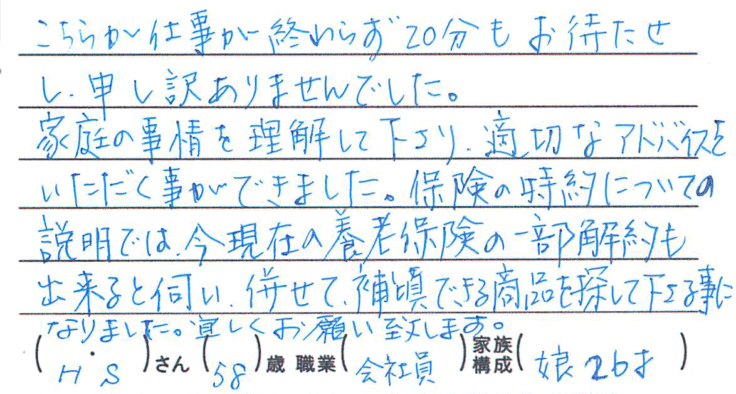 こちらが仕事が終わらず20分もお待たせ
し、申し訳ありませんでした。
家庭の事情を理解して下さり、適切なアドバイスを
いただく事ができました。保険の特約についての
説明では、今現在の養老保険の一部解約も
出来ると伺い、併せて、補填できる商品を探して下さる事に
なりました。宜しくお願い致します。
(H・S)さん(58)歳 職業(会社員)家族構成(娘26才)